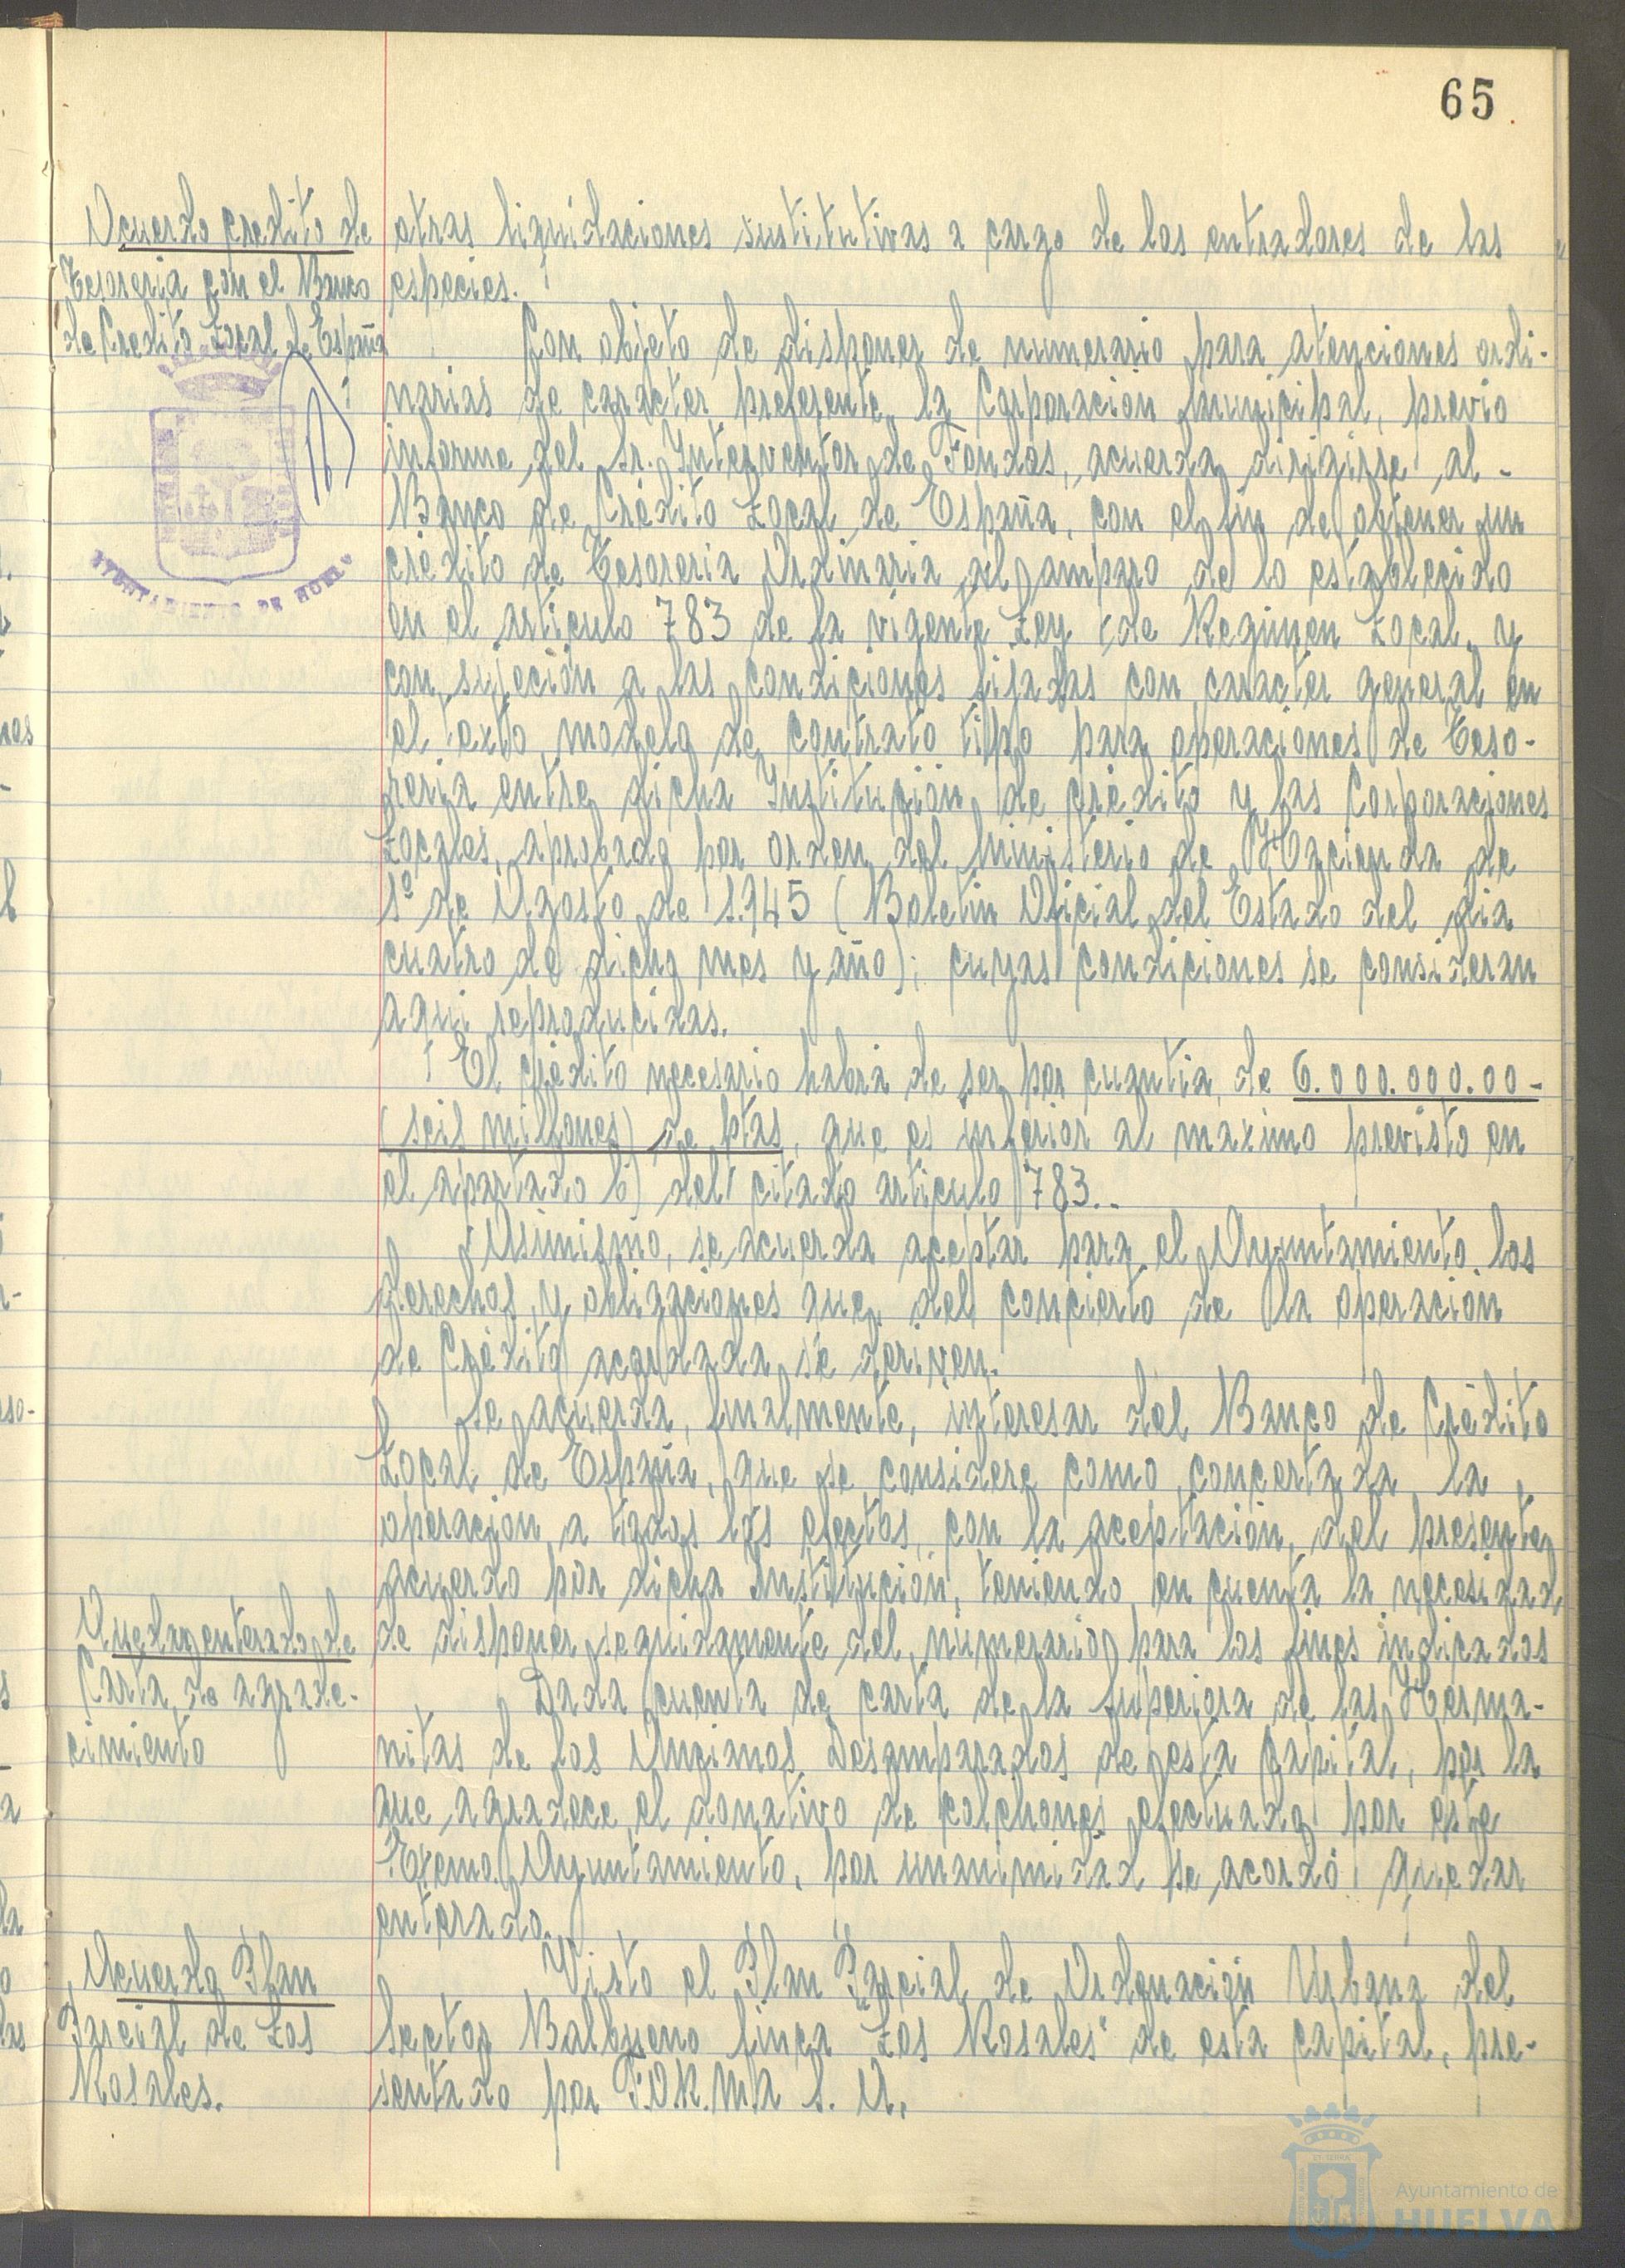 65
Acuerdo credito de
Tesoreria con el Banco
de Credito Local de España
AYUNTAMIENTO DE HUELVA
otras liquidaciones sustitutivas a cargo de los entradores de las
especies.
Con objeto de disponer de numerario para atenciones ordi-
narias de carácter preferente, la Corporación Municipal, previo
informe del Sr. Interventor de Fondos, acuerda dirigirse al -
Banco de Crédito Local de España, con el fin de obtener un
crédito de Tesoreria Ordinaria al amparo de lo establecido
en el articulo 783 de la vigente Ley de Regimen Local, y
con sujeción a las condiciones fijadas con caracter general en
el texto modelo de contrato tipo para operaciones de Teso-
reria entre dicha Institución de crédito y las Corporaciones
Locales, aprobado por orden del Ministerio de Hacienda de
1º de Agosto de 1.945 (Boletin Oficial del Estado del dia
cuatro de dicho mes y año); cuyas condiciones se consideran
aqui reproducidas.
El crédito necesario habrá de ser por cuantia de 6.000.000.00-
(seis millones) de ptas, que es inferior al maximo previsto en
el apartado b) del citado articulo 783..
Asimismo, se acuerda aceptar para el Ayuntamiento los
derechos y obligaciones que del concierto de la operación
de Crédito acordada se deriven.
Se acuerda, finalmente, interesar del Banco de Crédito
Local de España, que se considere como concertada la
operación a todos los efectos, con la aceptación, del presente
acuerdo por dicha Institución, teniendo en cuenta la necesidad
de disponer seguidamente del numerario para los fines indicados
Quedar enterado de
Carta de agrade-
cimiento
Dada cuenta de carta de la Superiora de las Herma-
nitas de los Ancianos Desamparados de esta capital, por la
que agradece el donativo de colchones efectuado por este
Excmo. Ayuntamiento, por unanimidad se acordó quedar
enterado.
Acuerdo Plan
Parcial de Los
Rosales.
Visto el Plan Parcial de Ordenación Urbana del
Sector Balbueno finca Los Rosales" de esta capital, pre-
sentado por F.O.R.MA S. A.
Ayuntamiento de
HUELVA